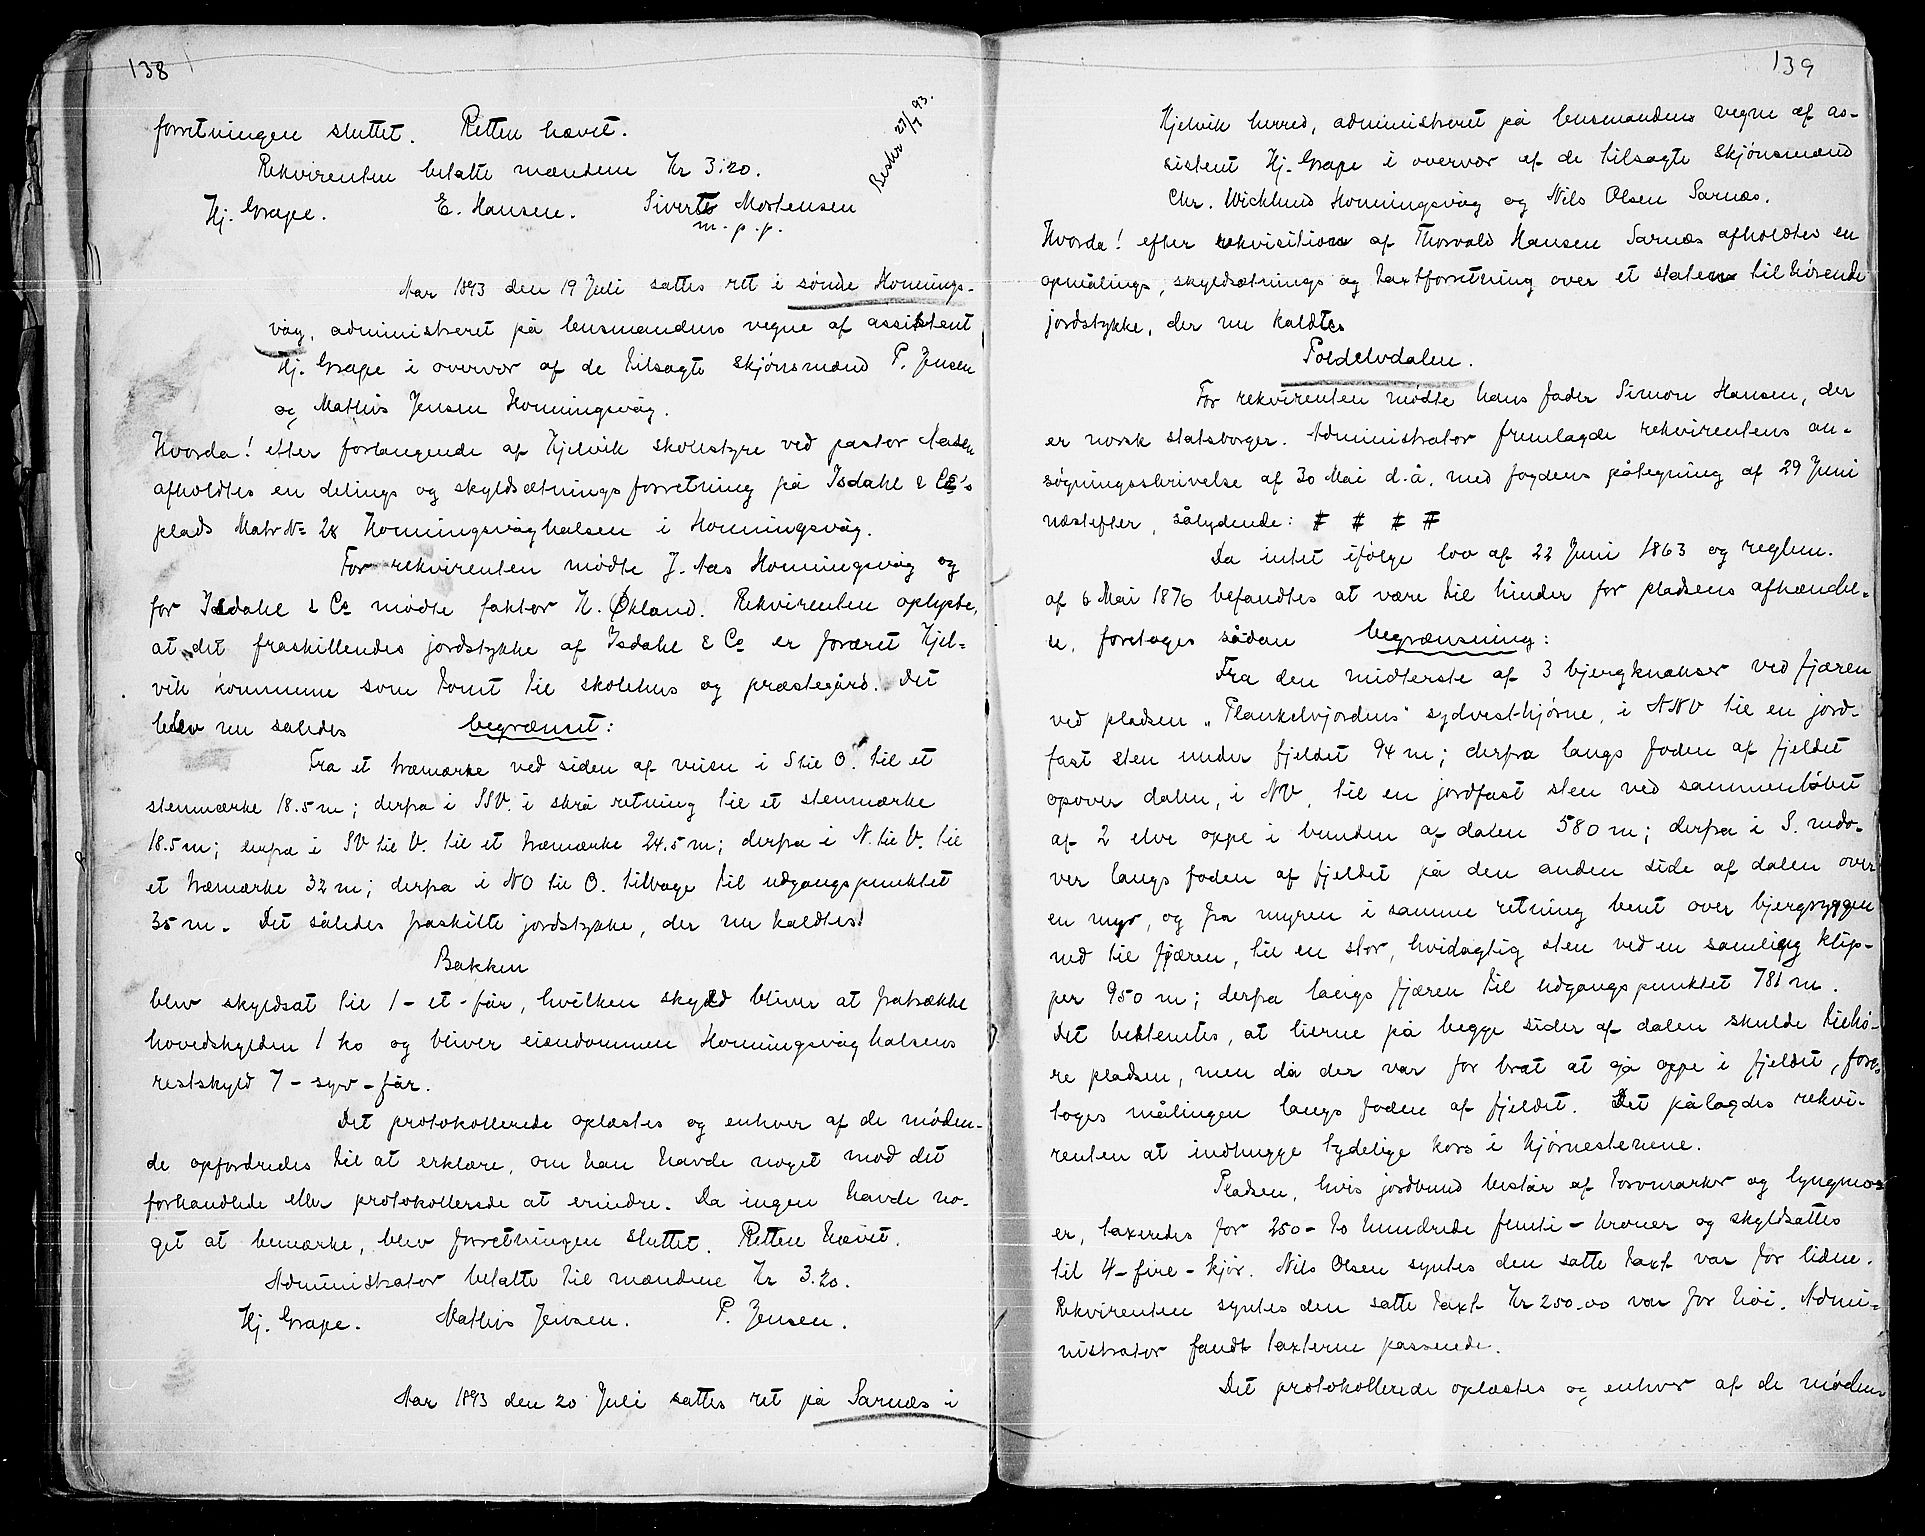 138
forretningen sluttet. Retten hævet.
Beskr 27/7 93.
Rekvirenten betalte mændene Kr 3.20.
Hj. Grape. E. Hansen. Sivert Mortensen
m. p. p.
Aar 1893 den 19 Juli sattes ret i søndre Honnings-
våg, administreret på lensmandens vegne af assistent
Hj. Grape i overvær af de tilsagte skjønsmænd P. Jensen
og Mathis Jensen Honningsvåg.
Hvorda! efter forlangende af Kjelvik skolestyre ved pastor Aasen
afholdtes en delings og skyldsætningsforretning på Isdahl & Co's
plads Matr No 28 Honningsvåghalsen i Honningsvåg.
For rekvirenten mødte J. Aas Honningsvåg og
for Isdahl & Co mødte faktor H. Økland. Rekvirenten oplyste,
at det fraskillendes jordstykke af Isdahl & Co er foræret Kjel-
vik kommune som tomt til skolehus og præstegård. Det
blev nu saledes begrænset:
Fra et træmærke ved siden af veien i S til O. til et
stenmærke 18.5 m; derfra i SSV. i skrå retning til et stenmærke
18.5 m; derfra i SV til V. til et træmærke 24.5 m; derfra i N. til V. til
et træmærke 32 m; derfra i NO til O. tilbage til udgangspunktet
35 m. Det således fraskilte jordstykke, der nu kaldtes!
Bakken
blev skyldsat til 1 - et - får, hvilken skyld bliver at fratrække
hovedskylden 1 ko og bliver eiendommen Honningsvåghalsens
restskyld 7 - syv - får.
Det protokollerede oplæstes og enhver af de møden-
de opfordredes til at erklære, om han havde noget mod det
forhandlede eller protokollerede at erindre. Da ingen havde no-
get at bemærke, blev forretningen sluttet. Retten hævet.
Administrator betalte til mændene Kr 3.20.
Hj. Grape. Mathis Jensen. P. Jensen.
Aar 1893 den 20 Juli sattes ret på Sarnæs i
139
Kjelvik herred, administreret på lensmandens vegne af as-
sistent Hj. Grape i overvær af de tilsagte skjønsmænd
Chr. Wicklund Honningsvåg og Nils Olsen Sarnæs.
Hvorda! efter rekvisition af Thorvald Hansen Sarnæs afholdtes en
opmålings, skyldsætnings og taxtforretning over et staten tilhørende
jordstykke, der nu kaldtes
Poldelvdalen.
For rekvirenten mødte hans fader Simon Hansen, der
er norsk statsborger. Administrator fremlagde rekvirentens an-
søgningsskrivelse af 30 Mai d.å. med fogdens påtegning af 29 Juni
næstefter, sålydende: # # # #
Da intet ifølge lov af 22 Juni 1863 og reglem.
af 6 Mai 1876 befandtes at være til hinder for pladsens afhændel-
se, foretoges sådan begrænsning:
Fra den midterste af 3 bjergknauser ved fjæren
ved pladsen "Plankelvjordens" sydvesthjørne, i NNV til en jord-
fast sten under fjeldet 94 m; derfra langs foden af fjeldet
opover dalen, i NV, til en jordfast sten ved sammenløbet
af 2 elve oppe i bunden af dalen 580 m; derfra i S. nedo-
ver langs foden af fjeldet på den anden side af dalen over
en myr, og fra myren i samme retning bent over bjergryggen
ned til fjæren, til en stor, hvidagtig sten ved en samling klip-
per 950 m; derfra langs fjæren til udgangspunktet 781 m.
Det bestemtes, at lierne på begge sider af dalen skulde tilhø-
re pladsen, men da der var for brat at gå oppe i fjeldet, fore-
toges målingen langs foden af fjeldet. Det pålagdes rekvi-
renten at indhugge tydelige kors i hjørnestenene.
Pladsen, hvis jordbund består af torvmarker og lyngmo-
er, taxeredes for 250 - to hundrede femti - kroner og skyldsattes
til 4 - fire - kjør. Nils Olsen syntes den satte taxt var for liden.
Rekvirenten syntes den satte taxt Kr 250.00 var for høi. Admi-
nistrator fandt taxterne passende.
Det protokollerede oplæstes og enhver af de møden-